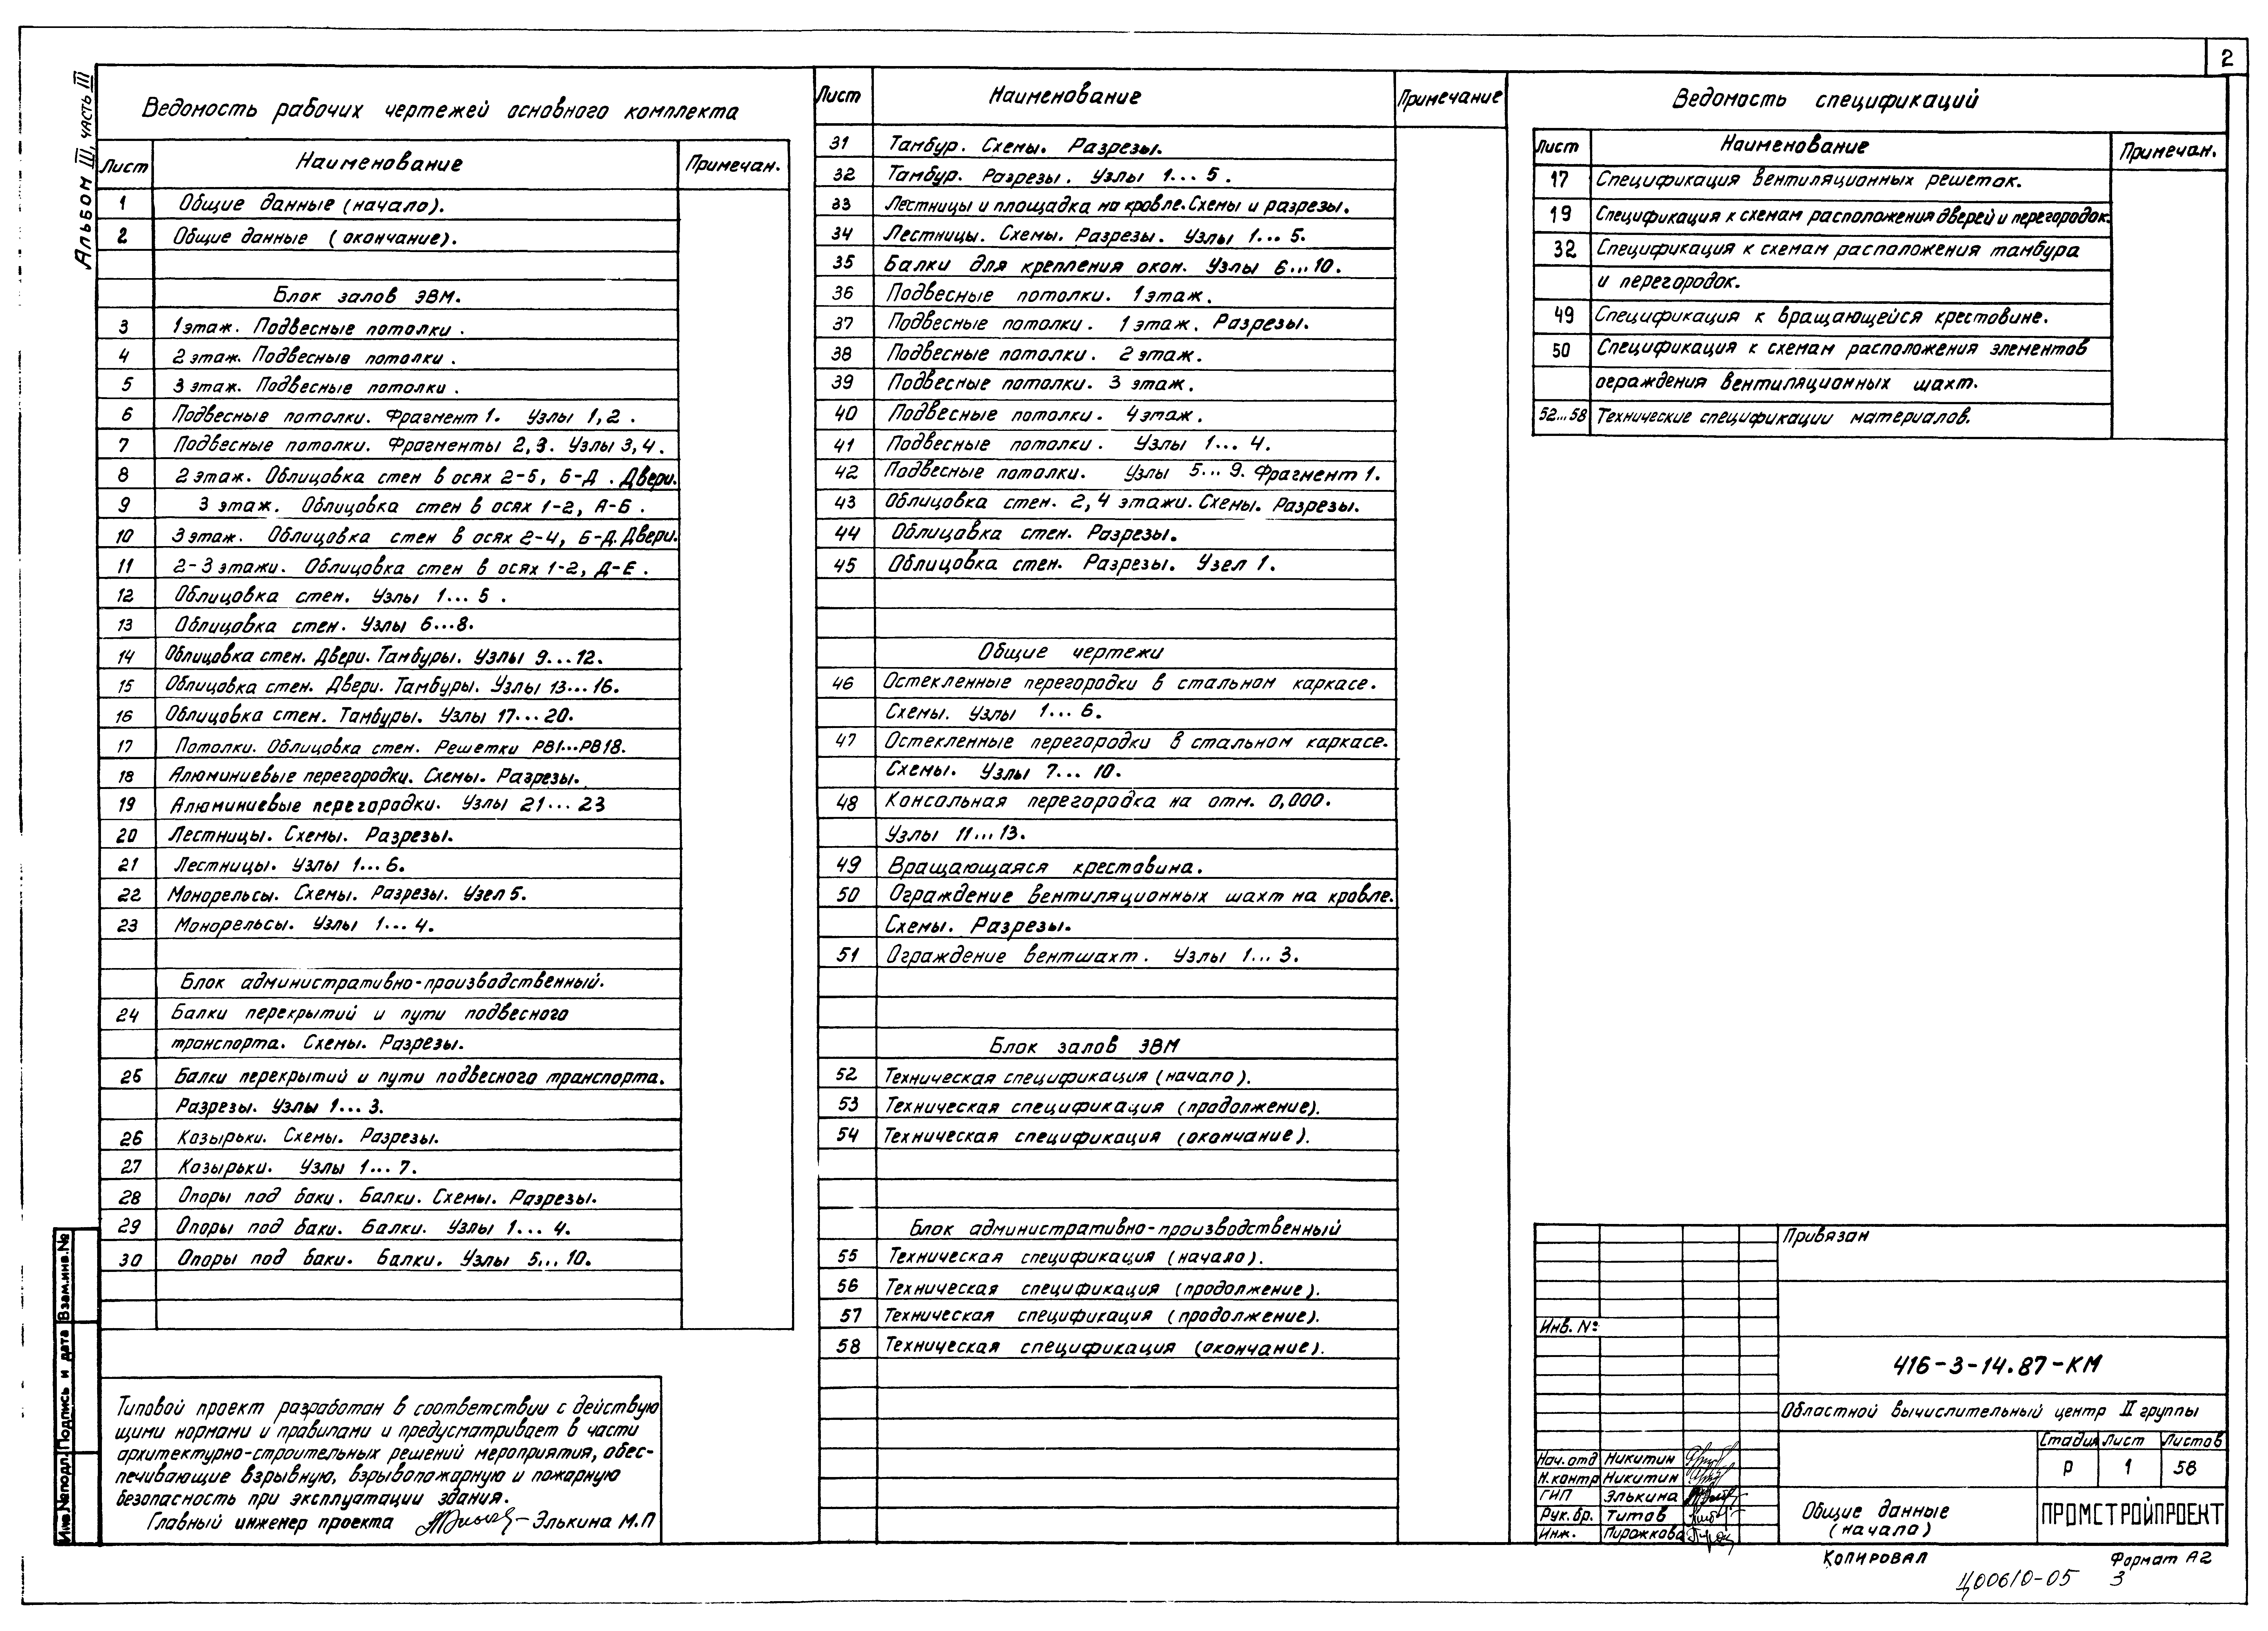 2
Альбом III, часть III
Ведомость рабочих чертежей основного комплекта
Лист Наименование Примечан.
1 Общие данные (начало).
2 Общие данные (окончание).
Блок залов ЭВМ.
3 1 этаж. Подвесные потолки.
4 2 этаж. Подвесные потолки.
5 3 этаж. Подвесные потолки.
6 Подвесные потолки. Фрагмент 1. Узлы 1, 2.
7 Подвесные потолки. Фрагменты 2, 3. Узлы 3, 4.
8 2 этаж. Облицовка стен в осях 2-5, Б-Д. Двери.
9 3 этаж. Облицовка стен в осях 1-2, А-Б.
10 3 этаж. Облицовка стен в осях 2-4, Б-Д. Двери.
11 2-3 этажи. Облицовка стен в осях 1-2, Д-Е.
12 Облицовка стен. Узлы 1...5.
13 Облицовка стен. Узлы 6...8.
14 Облицовка стен. Двери. Тамбуры. Узлы 9...12.
15 Облицовка стен. Двери. Тамбуры. Узлы 13...16.
16 Облицовка стен. Тамбуры. Узлы 17...20.
17 Потолки. Облицовка стен. Решетки РВ1...РВ18.
18 Алюминиевые перегородки. Схемы. Разрезы.
19 Алюминиевые перегородки. Узлы 21...23
20 Лестницы. Схемы. Разрезы.
21 Лестницы. Узлы 1...6.
22 Монорельсы. Схемы. Разрезы. Узел 5.
23 Монорельсы. Узлы 1...4.
Блок административно-производственный.
24 Балки перекрытий и пути подвесного
транспорта. Схемы. Разрезы.
25 Балки перекрытий и пути подвесного транспорта.
Разрезы. Узлы 1...3.
26 Козырьки. Схемы. Разрезы.
27 Козырьки. Узлы 1...7.
28 Опоры под баки. Балки. Схемы. Разрезы.
29 Опоры под баки. Балки. Узлы 1...4.
30 Опоры под баки. Балки. Узлы 5...10.
Типовой проект разработан в соответствии с действую
щими нормами и правилами и предусматривает в части
архитектурно-строительных решений мероприятия, обес-
печивающие взрывную, взрывопожарную и пожарную
безопасность при эксплуатации здания.
Главный инженер проекта Элькина М.П
Инв.№подл. Подпись и дата Взам.инв.№
Лист Наименование Примечание
31 Тамбур. Схемы. Разрезы.
32 Тамбур. Разрезы. Узлы 1...5.
33 Лестницы и площадка на кровле. Схемы и разрезы.
34 Лестницы. Схемы. Разрезы. Узлы 1...5.
35 Балки для крепления окон. Узлы 6...10.
36 Подвесные потолки. 1 этаж.
37 Подвесные потолки. 1 этаж. Разрезы.
38 Подвесные потолки. 2 этаж.
39 Подвесные потолки. 3 этаж.
40 Подвесные потолки. 4 этаж.
41 Подвесные потолки. Узлы 1...4.
42 Подвесные потолки. Узлы 5...9. Фрагмент 1.
43 Облицовка стен. 2, 4 этажи. Схемы. Разрезы.
44 Облицовка стен. Разрезы.
45 Облицовка стен. Разрезы. Узел 1.
Общие чертежи
46 Остекленные перегородки в стальном каркасе.
Схемы. Узлы 1...6.
47 Остекленные перегородки в стальном каркасе.
Схемы. Узлы 7...10.
48 Консольная перегородка на отм. 0,000.
Узлы 11...13.
49 Вращающаяся крестовина.
50 Ограждение вентиляционных шахт на кровле.
Схемы. Разрезы.
51 Ограждение вентшахт. Узлы 1...3.
Блок залов ЭВМ
52 Техническая спецификация (начало).
53 Техническая спецификация (продолжение).
54 Техническая спецификация (окончание).
Блок административно-производственный
55 Техническая спецификация (начало).
56 Техническая спецификация (продолжение).
57 Техническая спецификация (продолжение).
58 Техническая спецификация (окончание).
Ведомость спецификаций
Лист Наименование Примечан.
17 Спецификация вентиляционных решеток.
19 Спецификация к схемам расположения дверей и перегородок.
32 Спецификация к схемам расположения тамбура
и перегородок.
49 Спецификация к вращающейся крестовине.
50 Спецификация к схемам расположения элементов
ограждения вентиляционных шахт.
52...58 Технические спецификации материалов.
Привязан
Инв. №
416-3-14.87-КМ
Областной вычислительный центр II группы
Стадия Лист Листов
Р 1 58
Нач. отд Никитин
Н. контр Никитин
ГИП Элькина
Рук. бр. Титов
Инж. Пирожкова
Общие данные
(начало)
ПРОМСТРОЙПРОЕКТ
Копировал Формат А2
Ц00610-05 3